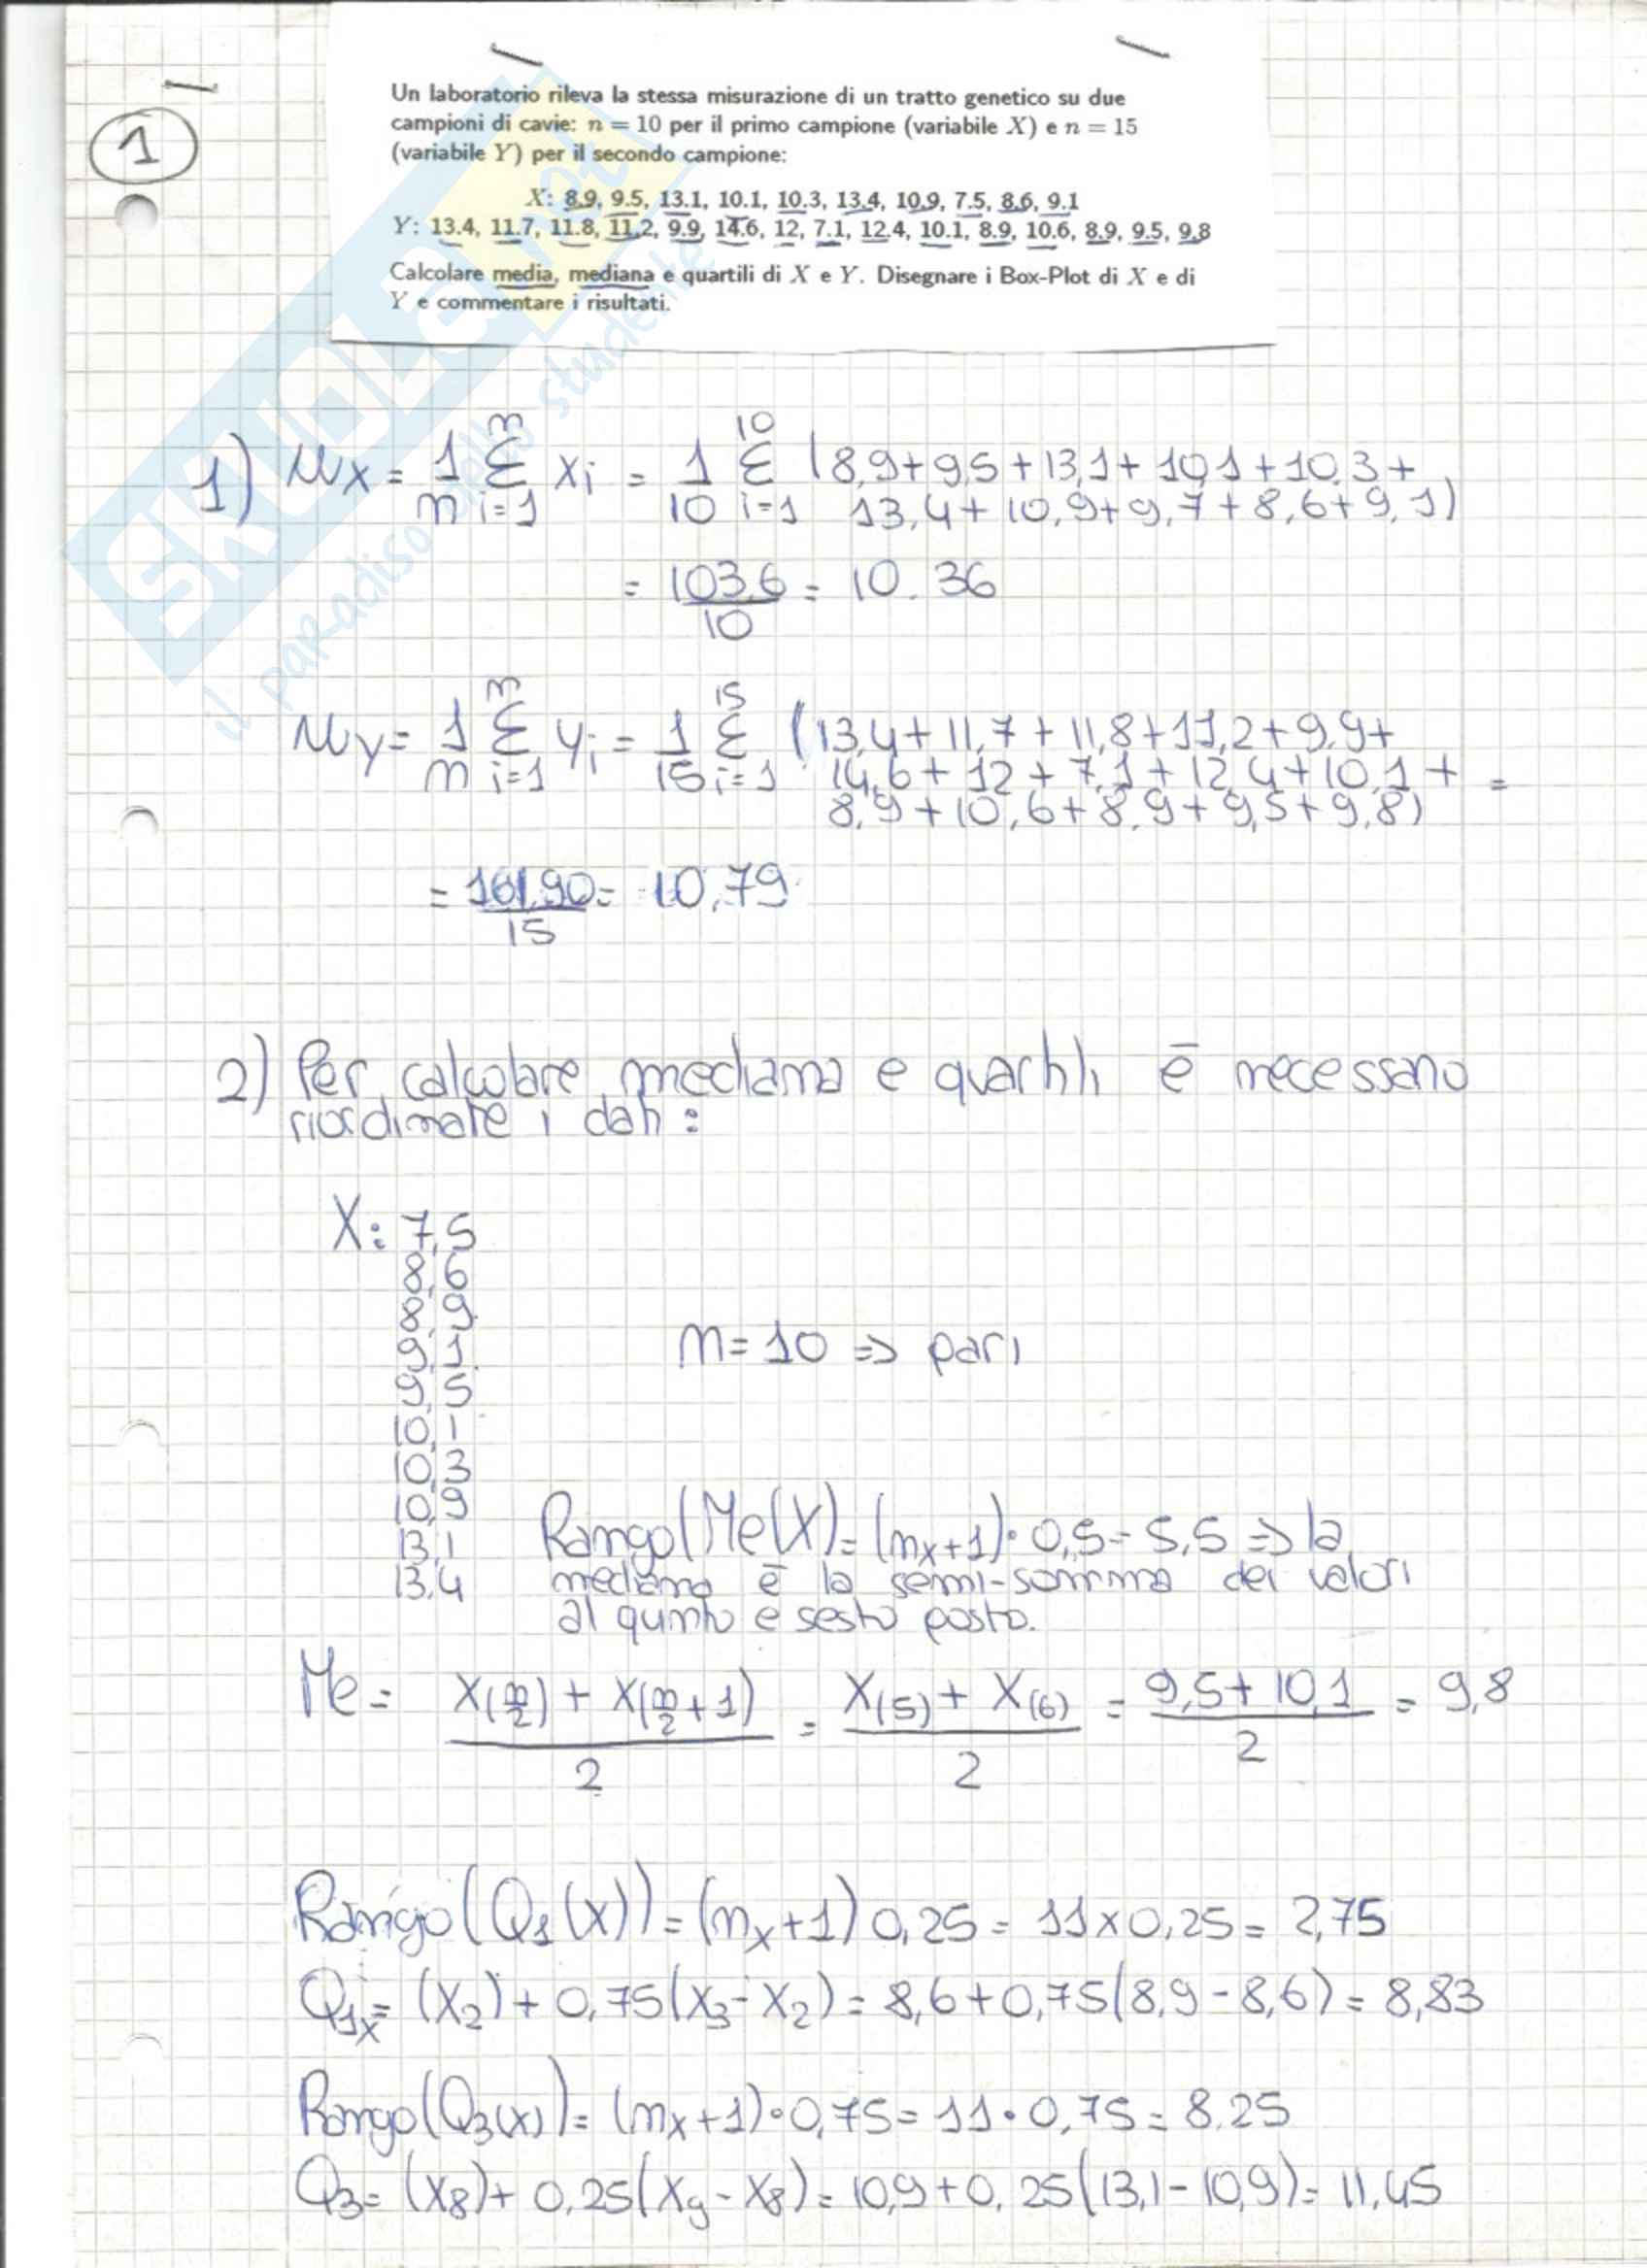 Un laboratorio rileva la stessa misurazione di un tratto genetico su due
campioni di cavie: n = 10 per il primo campione (variabile X) e n = 15
(variabile Y) per il secondo campione:
X: 8.9, 9.5, 13.1, 10.1, 10.3, 13.4, 10.9, 7.5, 8.6, 9.1
Y: 13.4, 11.7, 11.8, 11.2, 9.9, 14.6, 12, 7.1, 12.4, 10.1, 8.9, 10.6, 8.9, 9.5, 9.8
Calcolare media, mediana e quartili di X e Y. Disegnare i Box-Plot di X e di
Y e commentare i risultati.
1
SKUOLA.net
il paradiso dello studente
1) μx = 1/n Σ i=1 n xi = 1/10 Σ i=1 10 (8,9+9,5+13,1+10,1+10,3+
13,4+10,9+9,7+8,6+9,1)
= 103,6/10 = 10.36
μy = 1/n Σ i=1 n yi = 1/15 Σ i=1 15 (13,4+11,7+11,8+11,2+9,9+
14,6+12+7,1+12,4+10,1+ =
8,9+10,6+8,9+9,5+9,8)
= 161,90/15 = 10,79
2) Per calcolare mediana e quartili è necessario
riordinate i dati:
X: 7,5
8,6
8,9
9,1
9,5
10,1
10,3
10,9
13,1
13,4
n=10 => pari
Rango(Me(X)=(nx+1)·0,5=5,5 => la
mediana è la semi-somma dei valori
al quinto e sesto posto.
Me = X(n/2) + X(n/2+1) / 2 = X(5) + X(6) / 2 = 9,5+10,1 / 2 = 9,8
Rango(Q1(X))=(nx+1)0,25=11x0,25=2,75
Q1x=(X2)+0,75(X3-X2)=8,6+0,75(8,9-8,6)=8,83
Rango(Q3(X))=(nx+1)·0,75=11·0,75=8.25
Q3=(X8)+0,25(X9-X8)=10,9+0,25(13,1-10,9)=11,45